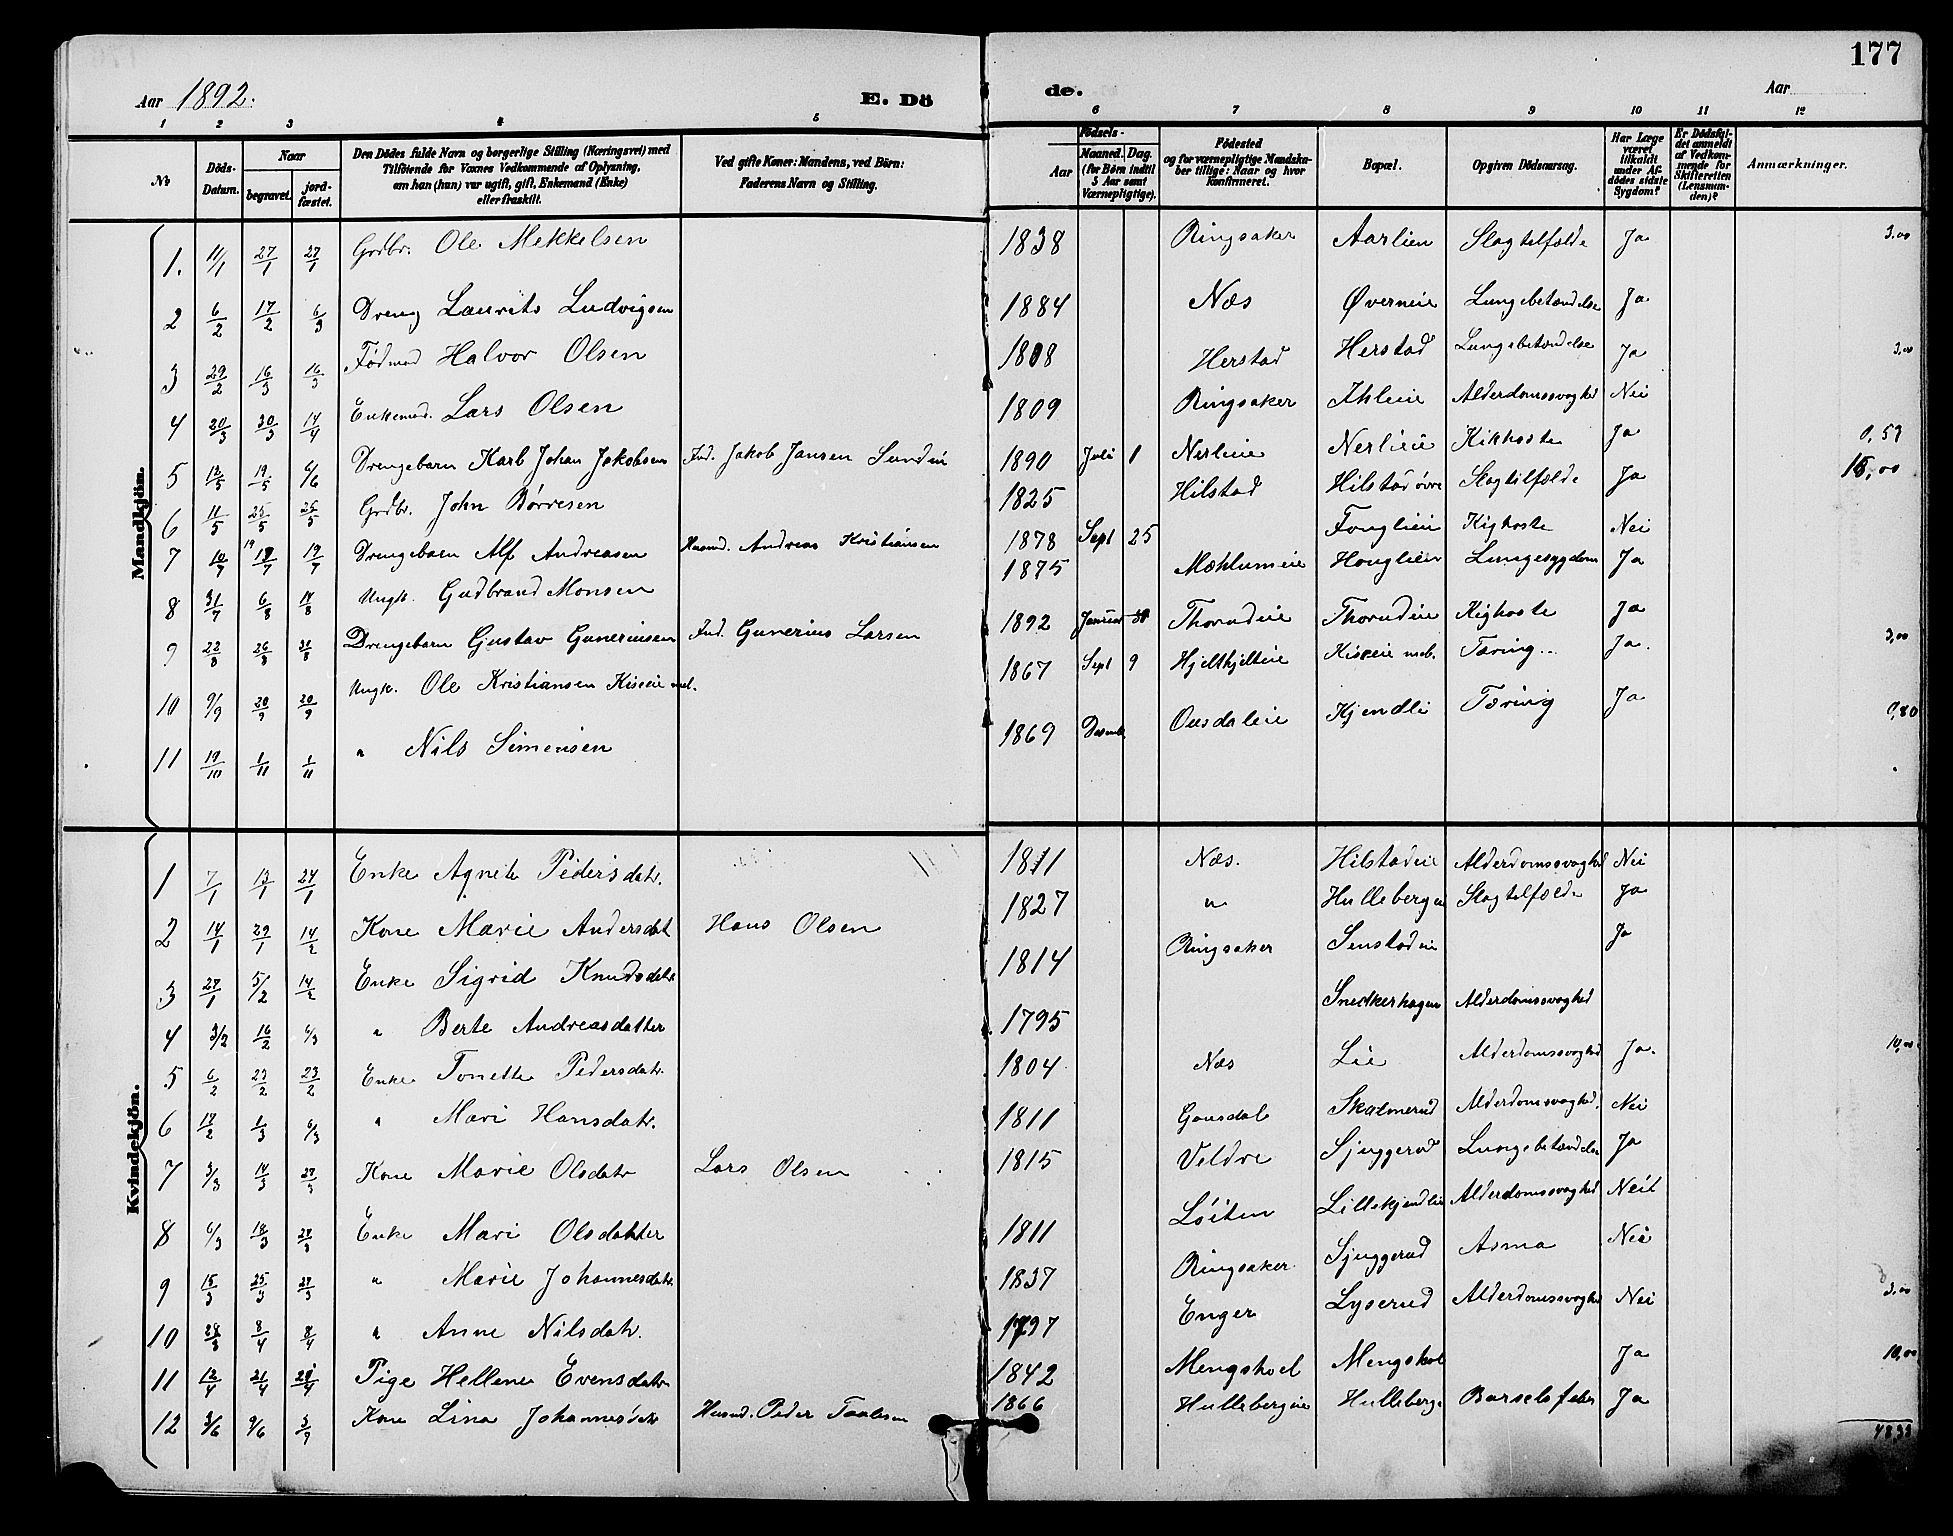 177
Aar 1892. E. Dö de. Aar
1 2 3 4 5 6 7 8 9 10 11 12
№ Döds-Datum. Naar begravet. jordfæstet. Den Dödes fulde Navn og borgerlige Stilling (Næringsvei) med Tilföiende for Voxnes Vedkommende af Oplysning, om han (hun) var ugift, gift, Enkemand (Enke) eller fraskilt. Ved gifte Koner: Mandens, ved Börn: Faderens Navn og Stilling. Födsels- Aar Maaned. Dag. (for Börn indtil 5 Aar samt Værnepligtige). Födested og for værnepligtige Mandskaber tillige: Naar og hvor konfirmeret. Bopæl. Opgiven Dödsaarsag. Har Læge været tilkaldt under Afdödes sidste Sygdom? Er Dödsfaldet anmeldt af Vedkommende for Skifteretten (Lensmanden)? Anmærkninger.
Mandkjön.
1. 11/1 27/1 27/1 Grdbr. Ole Mekkelsen 1838 Ringsaker Aarlien Slagtilfælde Ja 3,00
2 6/2 17/2 6/3 Dreng Laurits Ludvigsen 1884 Næs Øverneie Lungebetændelse Ja
3 29/2 16/3 16/3 Fødmd Halvor Olsen 1808 Herstad Herstad Lungebetændelse Ja 3,00
4 20/3 30/3 14/4 Enkemd. Lars Olsen 1809 Ringsaker Ihleie Alderdomssvaghed Nei
5 12/5 19/5 6/6 Drengebarn Karl Johan Jakobsen Ind. Jakob Jansen 1890 Juli 1 Nerlieie Nerlieie Kikhoste Ja
6 11/5 25/5 25/5 Grdbr. John Börresen 1825 Hilstad Hilstad övre Slagtilfælde Ja 15,00
7 10/7 19/7 19/7 Drengebarn Alf Andreasen Husmd. Andreas Kristiansen 1878 Sept 25 Fonglieie Kighoste Nei
8 31/7 6/8 14/8 Ungk. Gudbrand Monsen 1875 Mæhlumeie Honglieie Lungesygdom Ja
9 22/8 26/8 Drengebarn Gustav Gunerinsen Ind. Gunerius Larsen 1892 Thorudeie Thorudeie Kighoste Ja
10 9/9 20/9 20/9 Ungk. Ole Kristiansen Kiseeie 1867 Sept 9 Hjelthjelteie Kiseeie Tæring Ja. 3,00
11 19/10 1/11 1/11 " Nils Simensen 1869 Ousdaleie Kjendli Tæring Ja 0,80
Kvindekjön.
1 7/1 13/1 24/1 Enke Agnete Pedersdatr. 1811 Næs. Hilstadeie Alderdomssvaghed Nei
2 14/1 29/1 14/2 Kone Marie Andersdat Hans Olsen 1827 " Hullebergen Slagtilfælde Ja
3 27/1 5/2 14/2 Enke Sigrid Knudsdatr 1814 Ringsaker Senstadeie Ja
4 3/2 16/2 6/3 " Berte Andreasdatter 1795 Snedkerhagen Alderdomssvaghed
5 6/2 23/2 23/2 Enke Tonette Pedersdatr. 1804 Næs Lie Alderdomssvaghed Ja. 10,00
6 17/2 1/3 6/3 " Mari Hansdatr. 1811 Gausdal Skalmerud Alderdomssvaghed. Nei
7 3/3 14/3 27/3 Kone Marie Olsdatr Lars Olsen 1815 Veldre Sjuggerud Lungebetændelse Ja
8 6/3 18/3 27/3 Enke Mari Olsdatter 1811 Löiten Lillekjendlie Alderdomssvaghed Nei
9 15/3 25/3 27/3 " Marie Johannesdatr. 1837 Ringsaker Sjuggerud Asma Nei
10 28/3 8/4 8/4 " Anne Nilsdatr. 1797 Enger Lyserud Alderdomssvaghed Nei 3,00
11 12/4 21/4 21/4 Pige Hellene Evensdatr 1842 Mengshoel Mengshoel Ja 10,00
12 3/6 9/6 3/9 Kone Lina Johannesdatr Husmd. Peder Taalesen 1866 Hullebergeie Hulleberge Barselsfeber Ja